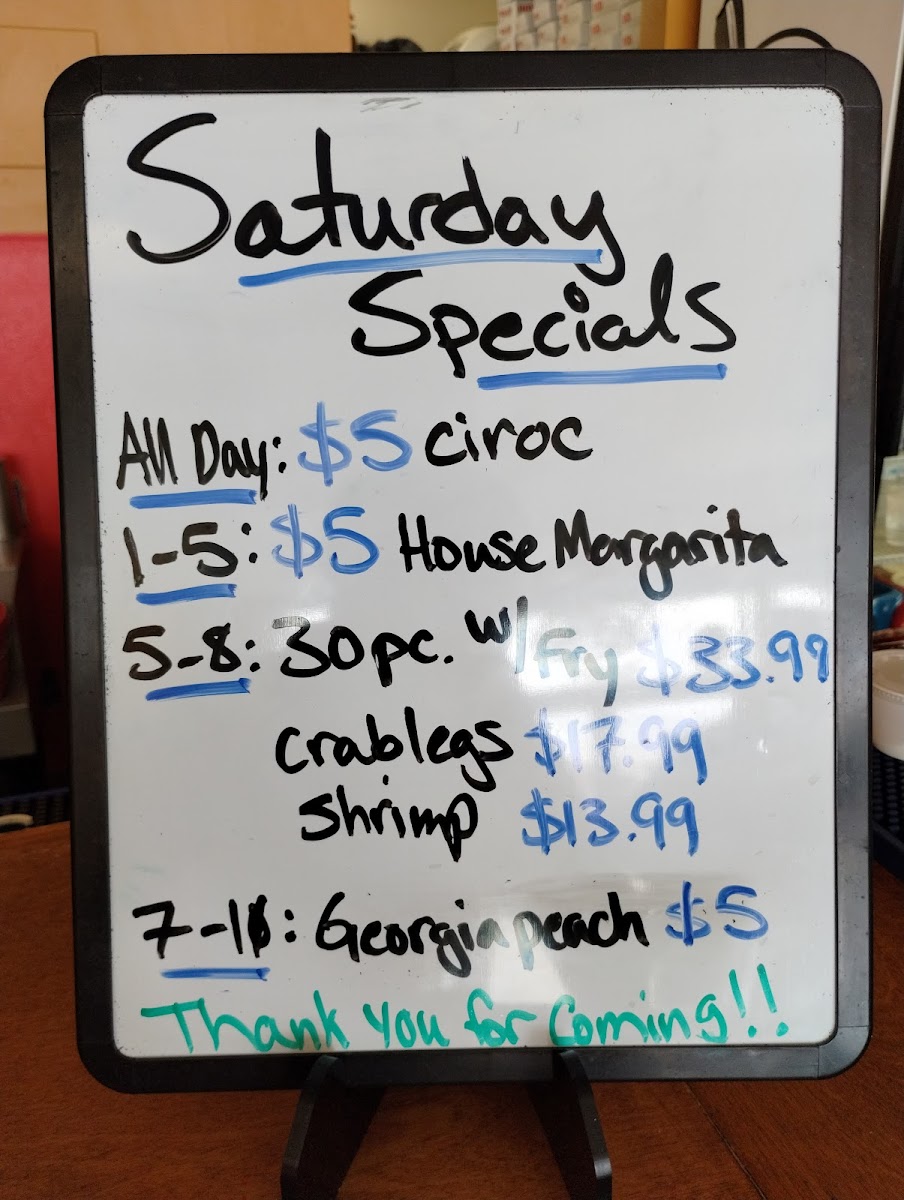 Saturday
Specials
All Day: $5 ciroc
1-5: $5 House Margarita
5-8: 30pc. w/ fry $33.99
crablegs $17.99
shrimp $13.99
7-10: Georgia peach $5
Thank you for Coming!!